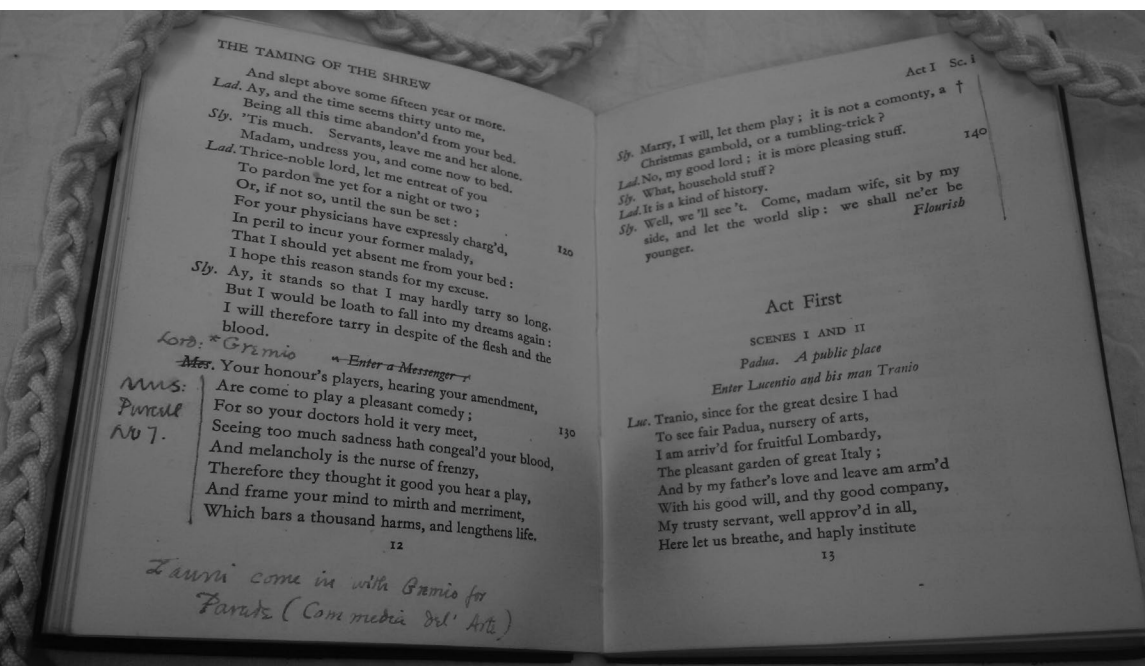 THE TAMING OF THE SHREW
And slept above some fifteen year or more.
Lad. Ay, and the time seems thirty unto me,
Being all this time abandon'd from your bed.
Sly. 'Tis much. Servants, leave me and her alone.
Madam, undress you, and come now to bed.
Lad. Thrice-noble lord, let me entreat of you
To pardon me yet for a night or two ;
Or, if not so, until the sun be set :
For your physicians have expressly charg'd,
In peril to incur your former malady, 120
That I should yet absent me from your bed :
I hope this reason stands for my excuse.
Sly. Ay, it stands so that I may hardly tarry so long.
But I would be loath to fall into my dreams again :
I will therefore tarry in despite of the flesh and the
blood.
Lord: * Gremio
Enter a Messenger
Mes. Your honour's players, hearing your amendment,
Are come to play a pleasant comedy ;
For so your doctors hold it very meet, 130
Seeing too much sadness hath congeal'd your blood,
And melancholy is the nurse of frenzy,
Therefore they thought it good you hear a play,
And frame your mind to mirth and merriment,
Which bars a thousand harms, and lengthens life.
Mus:
Purcell
No 7.
12
Zanni come in with Gremio for
Parade (Commedia del' Arte)
Act I Sc. i
Sly. Marry, I will, let them play ; it is not a comonty, a †
Christmas gambold, or a tumbling-trick ?
Lad. No, my good lord ; it is more pleasing stuff. 140
Sly. What, household stuff ?
Lad. It is a kind of history.
Sly. Well, we 'll see 't. Come, madam wife, sit by my
side, and let the world slip : we shall ne'er be
younger. Flourish
Act First
SCENES I AND II
Padua. A public place
Enter Lucentio and his man Tranio
Luc. Tranio, since for the great desire I had
To see fair Padua, nursery of arts,
I am arriv'd for fruitful Lombardy,
The pleasant garden of great Italy ;
And by my father's love and leave am arm'd
With his good will, and thy good company,
My trusty servant, well approv'd in all,
Here let us breathe, and haply institute
13